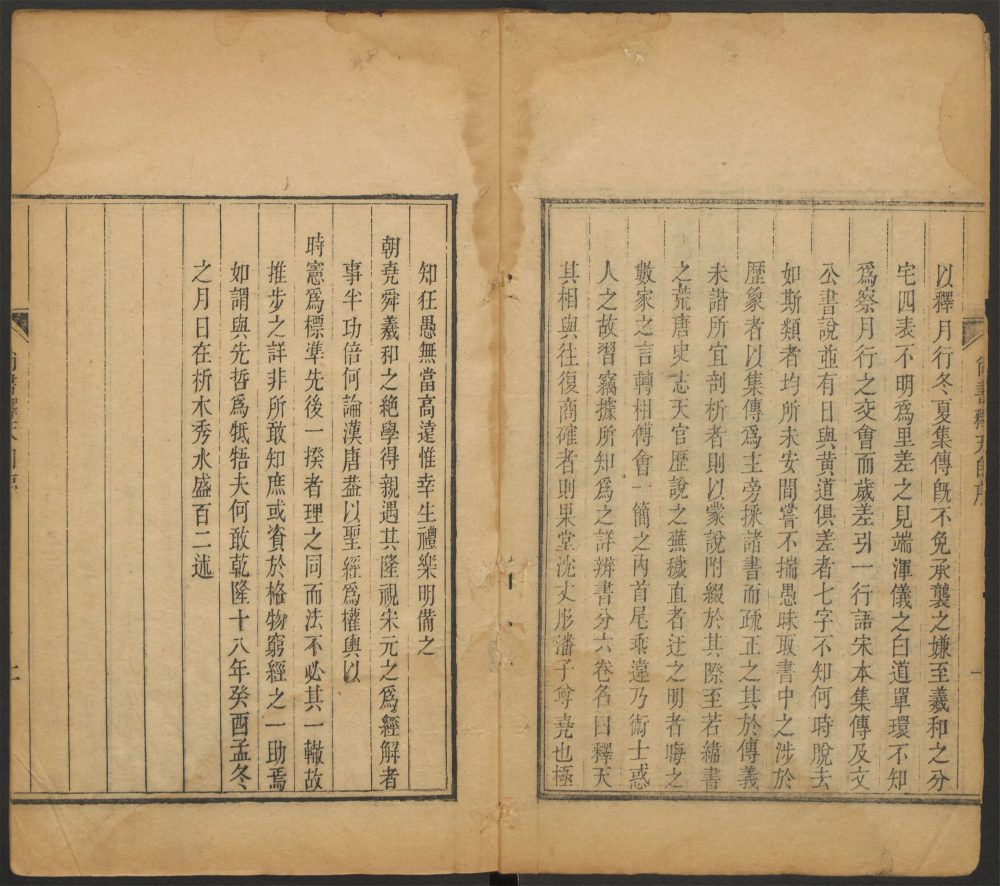 以釋月行冬夏集傳旣不免承襲之嫌至羲和之分
宅四表不明爲里差之見端渾儀之白道單環不知
爲察月行之交會而歲差引一行語宋本集傳及文
公書說並有日與黃道俱差者七字不知何時脫去
如斯類者均所未安間嘗不揣愚昧取書中之涉於
歴象者以集傳爲主旁採諸書而疏正之其於傳義
未諧所宜剖析者則以蒙說附綴於其際至若緯書
之荒唐史志天官歴說之蕪穢直者迂之明者晦之
數家之言轉相傅會一簡之內首尾乖違乃術士惑
人之故習竊據所知爲之詳辨書分六卷名曰釋天
其相與往復商確者則果堂沈丈彤潘子尊堯也極
知狂愚無當高遠惟幸生禮樂明備之
朝堯舜羲和之絶學得親遇其隆視宋元之爲經解者
事半功倍何論漢唐葢以聖經爲權輿以
時憲爲標準先後一揆者理之同而法不必其一轍故
推步之詳非所敢知庶或資於格物窮經之一助焉
如謂與先哲爲牴牾夫何敢乾隆十八年癸酉孟冬
之月日在析木秀水盛百二述